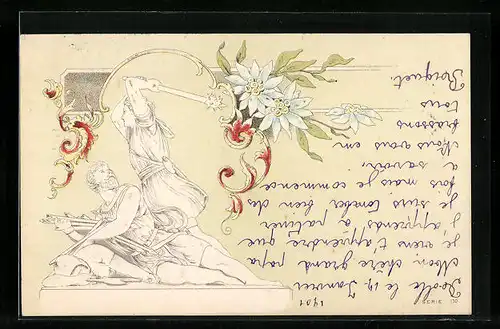 1901
le 19 Janvier
Mon chère grand papa
je viens t'apprendre que
j'apprends à patiner
je suis tombée bien des
fois mais je commence
à savoir,
Nous vous em
brassons
tous
SERIE 130